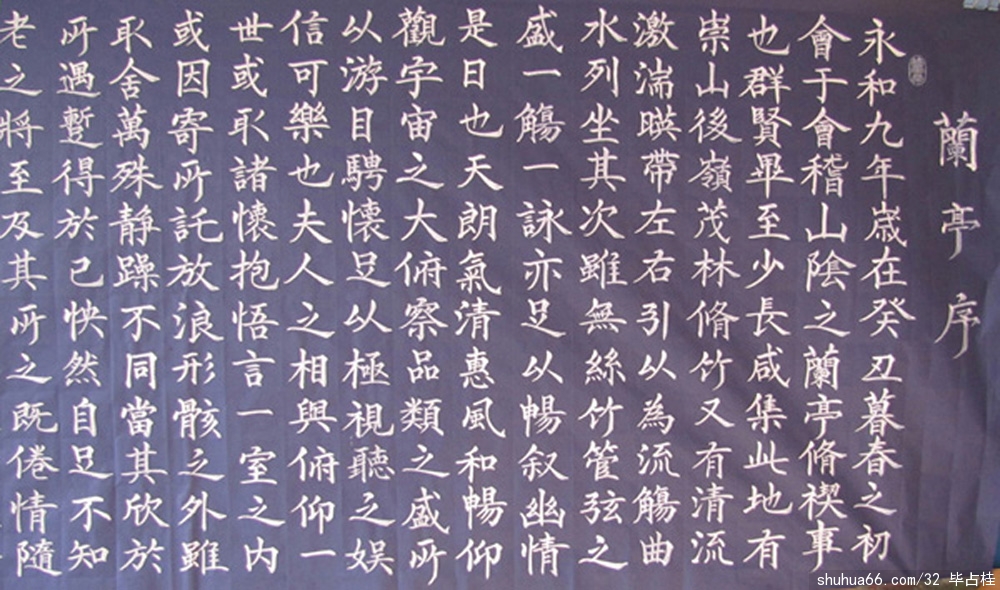 蘭亭序
永和九年歲在癸丑暮春之初
會于會稽山陰之蘭亭脩禊事
也群賢畢至少長咸集此地有
崇山後嶺茂林脩竹又有清流
激湍暎帶左右引以為流觴曲
水列坐其次雖無絲竹管弦之
盛一觴一詠亦足以暢叙幽情
是日也天朗氣清惠風和暢仰
觀宇宙之大俯察品類之盛所
以游目騁懷足以極視聽之娛
信可樂也夫人之相與俯仰一
世或取諸懷抱悟言一室之内
或因寄所託放浪形骸之外雖
取舍萬殊靜躁不同當其欣於
所遇暫得於己怏然自足不知
老之將至及其所之既倦情隨
shuhua66.com/32 毕占桂